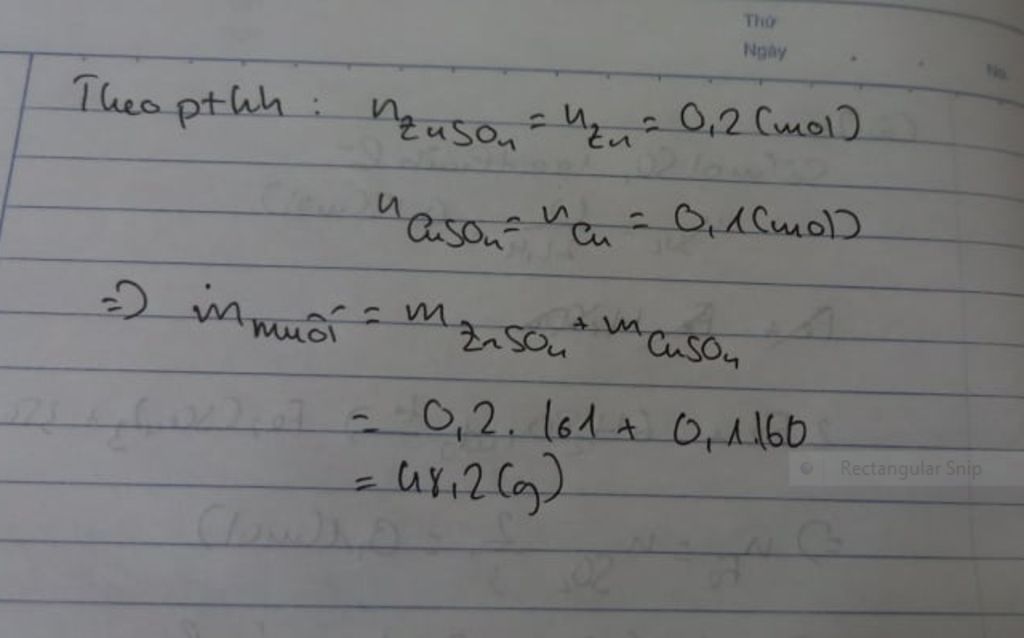 Thứ
Ngày
No.
Theo pthh : n ZnSO4 = n Zn = 0,2 (mol)
n CuSO4 = n Cu = 0,1 (mol)
=> m muối = m ZnSO4 + m CuSO4
= 0,2 . 161 + 0,1.160
= 48,2 (g)
Rectangular Snip